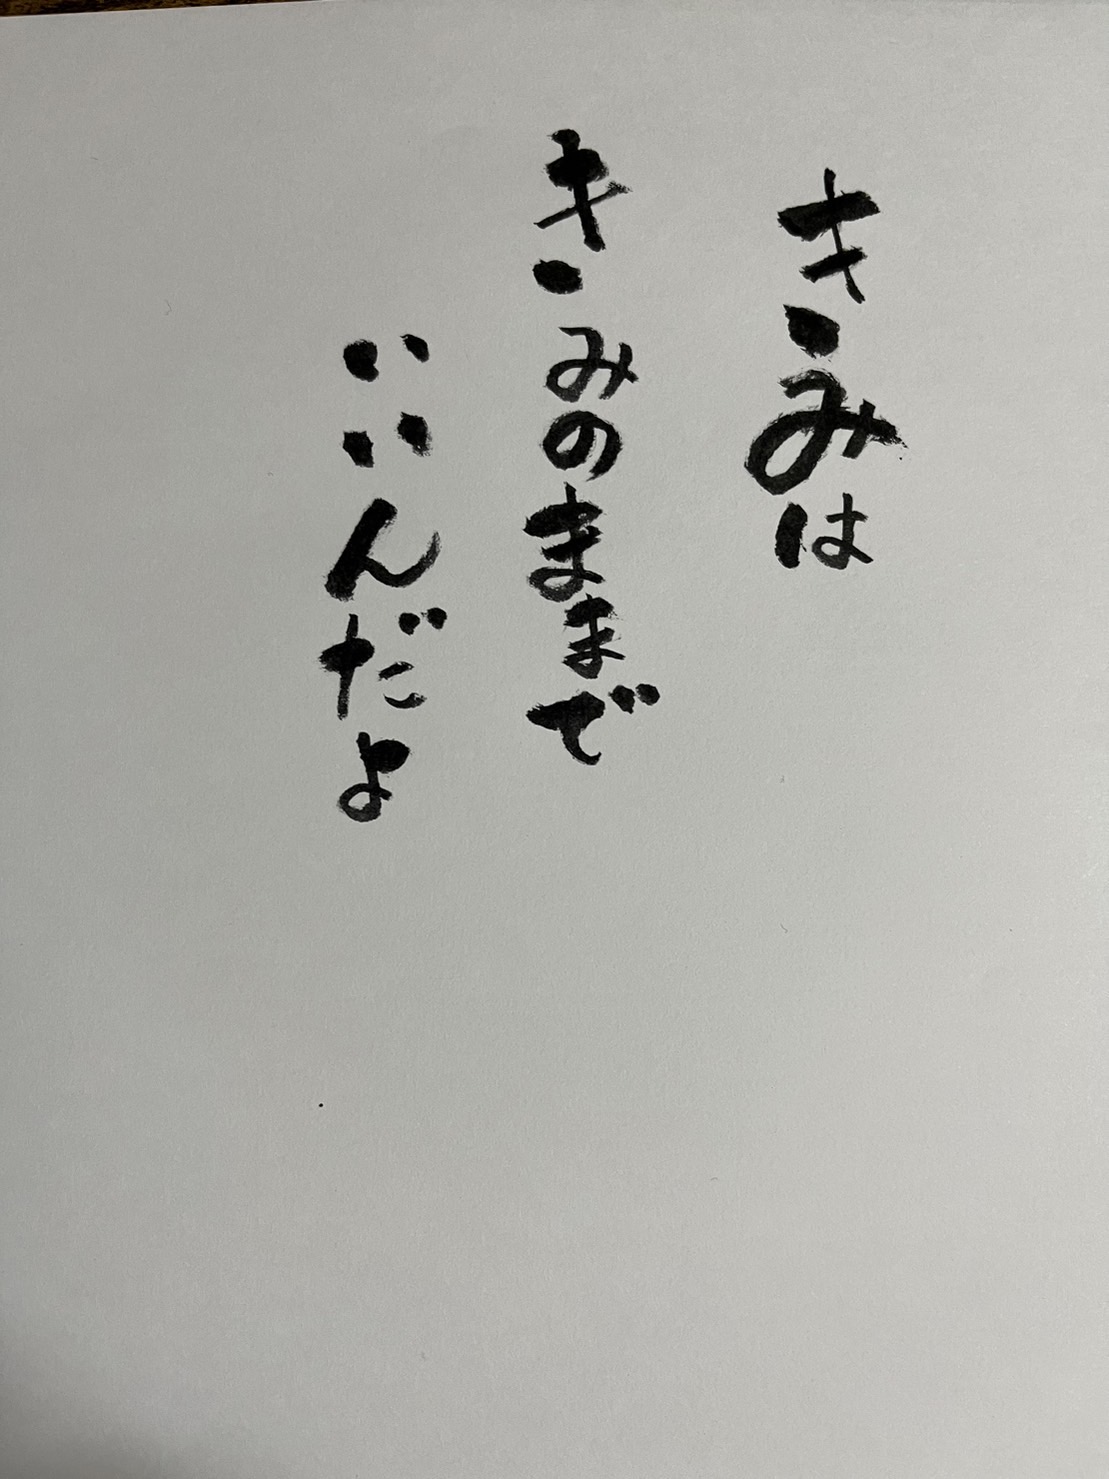 きみは
きみのままで
いいんだよ